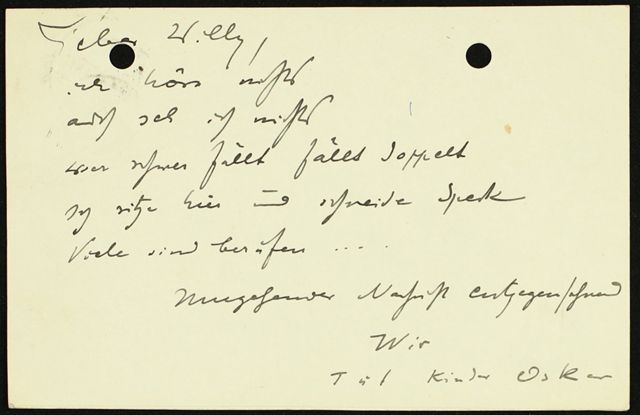 Lieber Willy,
ich höre nichts
auch seh ich nichts
wer schwer fällt fällt doppelt
ich sitze hier und schneide Speck
Viele sind berufen ....
umgehender Nachricht entgegensehend
Wir
Tut Kinder Oskar